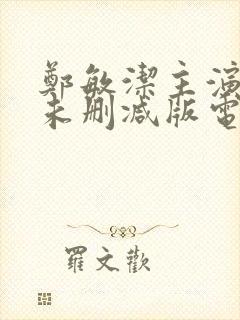 鄭敏潔主演
未刪減版電
羅文歡